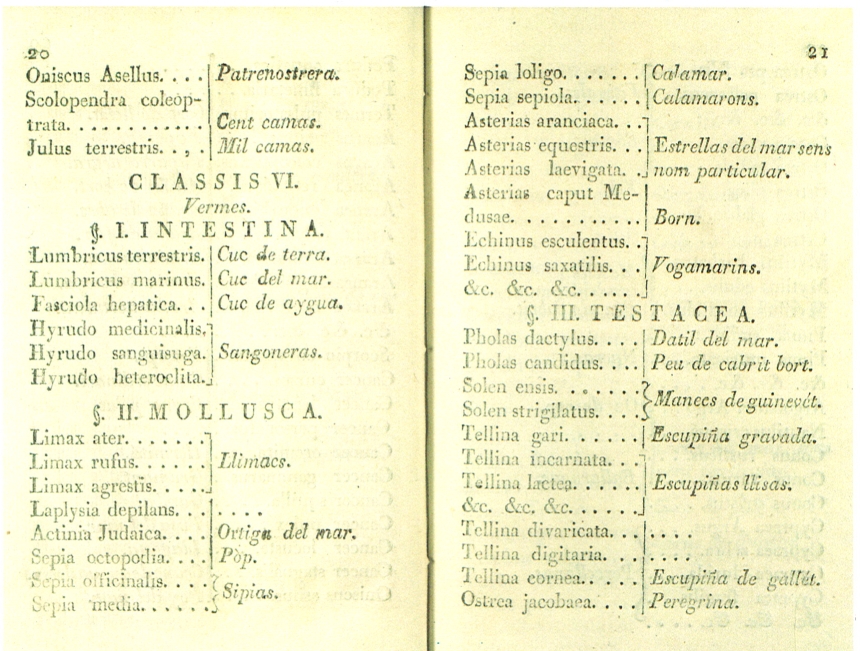 20
Oniscus Asellus. . . . Patrenostrera.
Scolopendra coleop-
trata. . . . . . . . . . . . Cent camas.
Julus terrestris. . , . Mil camas.
CLASSIS VI.
Vermes.
§. I. INTESTINA.
Lumbricus terrestris. Cuc de terra.
Lumbricus marinus. Cuc del mar.
Fasciola hepatica. . . Cuc de aygua.
Hyrudo medicinalis.
Hyrudo sanguisuga. Sangoneras.
Hyrudo heteroclita.
§. II. MOLLUSCA.
Limax ater. . . . . . .
Limax rufus. . . . . . Llimacs.
Limax agrestis. . . . .
Laplysia depilans. . . . . . .
Actinia Judaica. . . . Ortiga del mar.
Sepia octopodia. . . . Pòp.
Sepia officinalis. . . .
Sepia media. . . . . . . Sipias.
21
Sepia loligo. . . . . . . Calamar.
Sepia sepiola. . . . . . Calamarons.
Asterias aranciaca. . .
Asterias equestris. . . Estrellas del mar sens
Asterias laevigata. . . nom particular.
Asterias caput Me-
dusae. . . . . . . . . . . Born.
Echinus esculentus. .
Echinus saxatilis. . . Vogamarins.
&c. &c. &c. . . . . .
§. III. TESTACEA.
Pholas dactylus. . . . Datil del mar.
Pholas candidus. . . . Peu de cabrit bort.
Solen ensis. . . . . . .
Solen strigilatus. . . . Manecs de guinevét.
Tellina gari. . . . . . . Escupiña gravada.
Tellina incarnata. . .
Tellina lactea. . . . . . Escupiñas llisas.
&c. &c. &c. . . . . .
Tellina divaricata. . . . . . .
Tellina digitaria. . . . . . . .
Tellina cornea. . . . . Escupiña de gallét.
Ostrea jacobaea. . . . Peregrina.